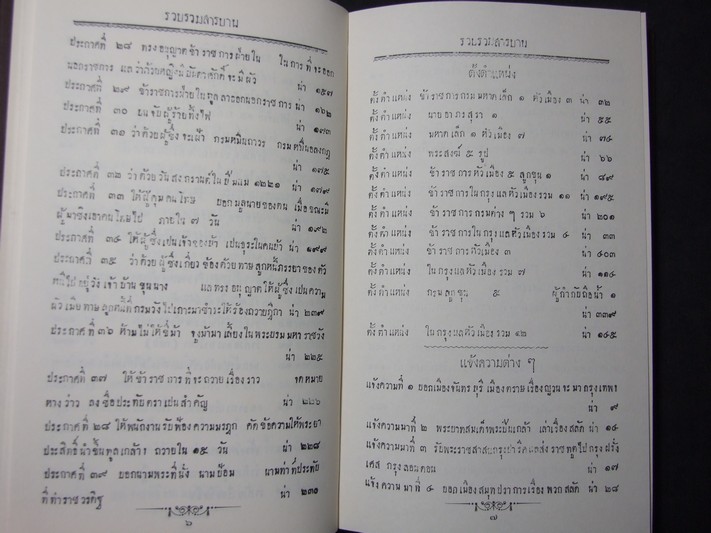 รวบรวมสารบาน
ประกาศที่ ๒๘ ทรงอนุญาตข้าราชการฝ่ายใน ในการที่จะออก
นอกราชการ แลว่าด้วยหญิงมีบันดาศักดิ์จะมีผัว น่า ๑๕๗
ประกาศที่ ๒๙ ข้าราชการฝ่ายในทูลลาออกนอกราชการ น่า ๑๖๒
ประกาศที่ ๓๐ บนจับผู้ร้ายทิ้งไฟ น่า ๑๗๓
ประกาศที่ ๓๑ ว่าด้วยผู้ซึ่งจะเฝ้า กรมหมื่นถาวร กรมหมื่นอลงกฎ
น่า ๑๗๕
ประกาศที่ ๓๒ ว่าด้วยวันสงกรานต์ในปีมแม ๑๒๒๑ น่า ๑๗๙
ประกาศที่ ๓๓ ให้ผู้คุมคนโทษ บอกมูลนายของคน เมื่อขณะมี
ผู้มาซึ่งเอาคนโทษไป ภายใน ๗ วัน น่า ๑๙๒
ประกาศที่ ๓๔ ให้ผู้ซึ่งเปนเจ้าของข้า เปนธุระในคนข้า น่า ๑๙๙
ประกาศที่ ๓๕ ว่าด้วยผู้ซึ่งเกี่ยวข้องด้วยทาษลูกหนี้ภรรยาของตัว
หนีไปอยู่วังเจ้าบ้านขุนนาง แลทรงอนุญาตให้ผู้ซึ่งเปนความ
น่า ๒๑๙
ประกาศที่ ๓๖ ห้ามไม่ให้ขี่ม้า จูงม้ามาเลี้ยงในพระบรมมหาราชวัง
น่า ๒๒๕
ประกาศที่ ๓๗ ให้ข้าราชการที่จะถวายเรื่องราว จดหมาย
ทางว่าว ลงชื่อประทับตราเปนสำคัญ น่า ๒๒๖
ประกาศที่ ๒๘ ให้พนักงานรับฟ้องความมรฎก คัดข้อความให้พระยา
ประสิทธิ์นำขึ้นทูลเกล้าฯ ถวายใน ๑๕ วัน น่า ๒๒๘
ประกาศที่ ๓๙ บอกนามพระที่นั่ง นามป้อม นามท่าที่ประทับ
ที่ท่าราชวรดิฐ น่า ๒๓๐
๖
รวบรวมสารบาน
ตั้งตำแหน่ง
ตั้งตำแหน่ง ข้าราชการกรมมหาดเล็ก ๑ หัวเมือง ๓ น่า ๓๒
ตั้งตำแหน่ง นายอากรสุรา ๑ น่า ๕๕
ตั้งตำแหน่ง มหาดเล็ก ๑ หัวเมือง ๗ น่า ๗๔
ตั้งตำแหน่ง พระสงฆ์ ๕ รูป น่า ๖๖
ตั้งตำแหน่ง ข้าราชการหัวเมือง ๕ ลูกขุน ๑ น่า ๘๙
ตั้งตำแหน่ง ข้าราชการในกรุงแลหัวเมืองรวม ๑๑ น่า ๑๙๕
ตั้งตำแหน่ง ข้าราชการกรมต่างๆ รวม ๖ น่า ๒๐๑
ตั้งตำแหน่ง ข้าราชการในกรุงแลหัวเมืองรวม ๔ น่า ๓๓
ตั้งตำแหน่ง ข้าราชการหัวเมือง ๓ น่า ๔๐๓
ตั้งตำแหน่ง ในกรุงแลหัวเมืองรวม ๗ น่า ๑๑๔
ตั้งตำแหน่ง กรมลูกขุน ๕ ผู้กำกับถือน้ำ ๑
น่า ๓๓๙
ตั้งตำแหน่ง ในกรุงแลหัวเมืองรวม ๑๒ น่า ๑๔๕
แจ้งความต่าง ๆ
แจ้งความที่ ๑ บอกเมืองจันทรบุรี เมืองตราษเรื่องญวนจะมากรุงเทพฯ
น่า ๙
แจ้งความมาที่ ๒ พระยาตสมเด็จพระปิ่นเกล้า เล่าเรื่องสลัด น่า ๑๔
แจ้งความมาที่ ๓ รับพระราชสาสนกรุงปารีศแลส่งราชทูตไปกรุงฝรั่ง
เศส กรุงลอนดอน น่า ๑๗
แจ้งความมาที่ ๔ บอกเมืองสมุทปราการเรื่องพวกสลัด น่า ๒๘
๗